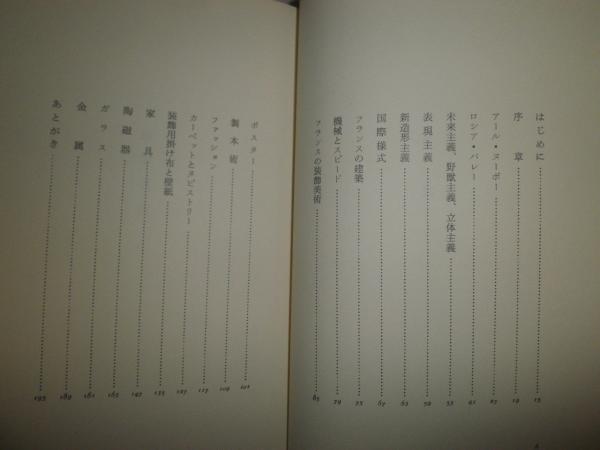 はじめに 15
序章 19
アール・ヌーボー 27
ロシア・バレー 41
未来主義、野獣主義、立体主義 53
表現主義 59
新造形主義 63
国際様式 67
フランスの建築 75
機械とスピード 79
フランスの装飾美術 85
ポスター 101
製本術 109
ファッション 117
カーペットとタピストリー 127
装飾用掛け布と壁紙 135
家具 147
陶磁器 165
ガラス 181
金属 189
あとがき 195